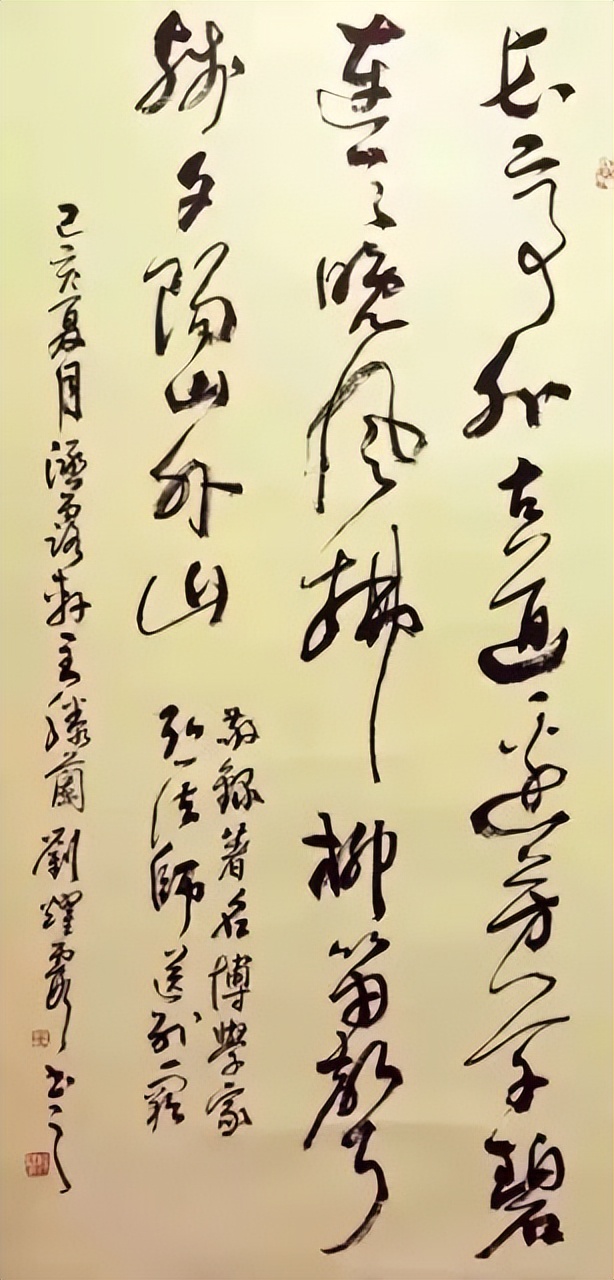 長亭外古道邊芳草碧
連天晚風拂柳笛聲
殘夕陽山外山
敬錄著名博學家
弘一法師送別
己亥夏月露軒主蘭劉書之